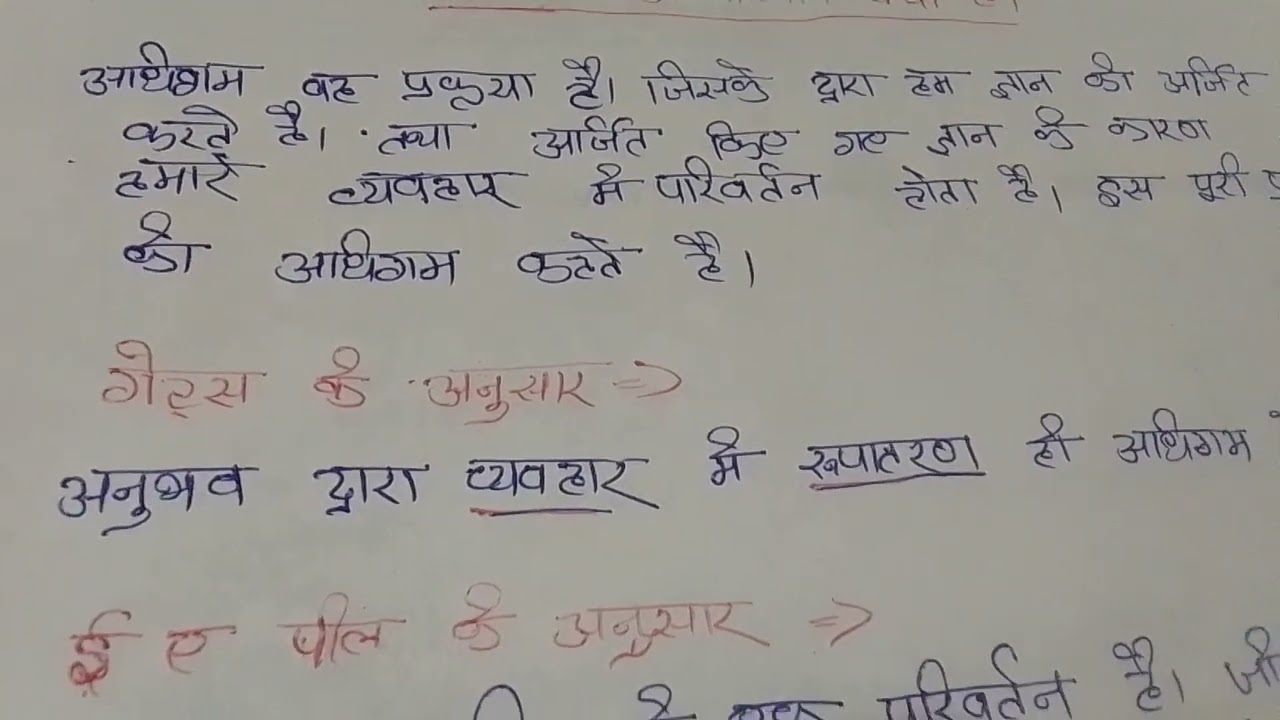 अधिगम वह प्रकृया है। जिसके द्वारा हम ज्ञान को अर्जित
करते है। तथा अर्जित किए गए ज्ञान के कारण
हमारे व्यवहार मे परिवर्तन होता है। इस पूरी
को अधिगम कहते है।
गेट्स के अनुसार ⇒
अनुभव द्वारा व्यवहार मे रूपातरण ही अधिगम
ई ए पील के अनुसार ⇒
परिवर्तन है। जो